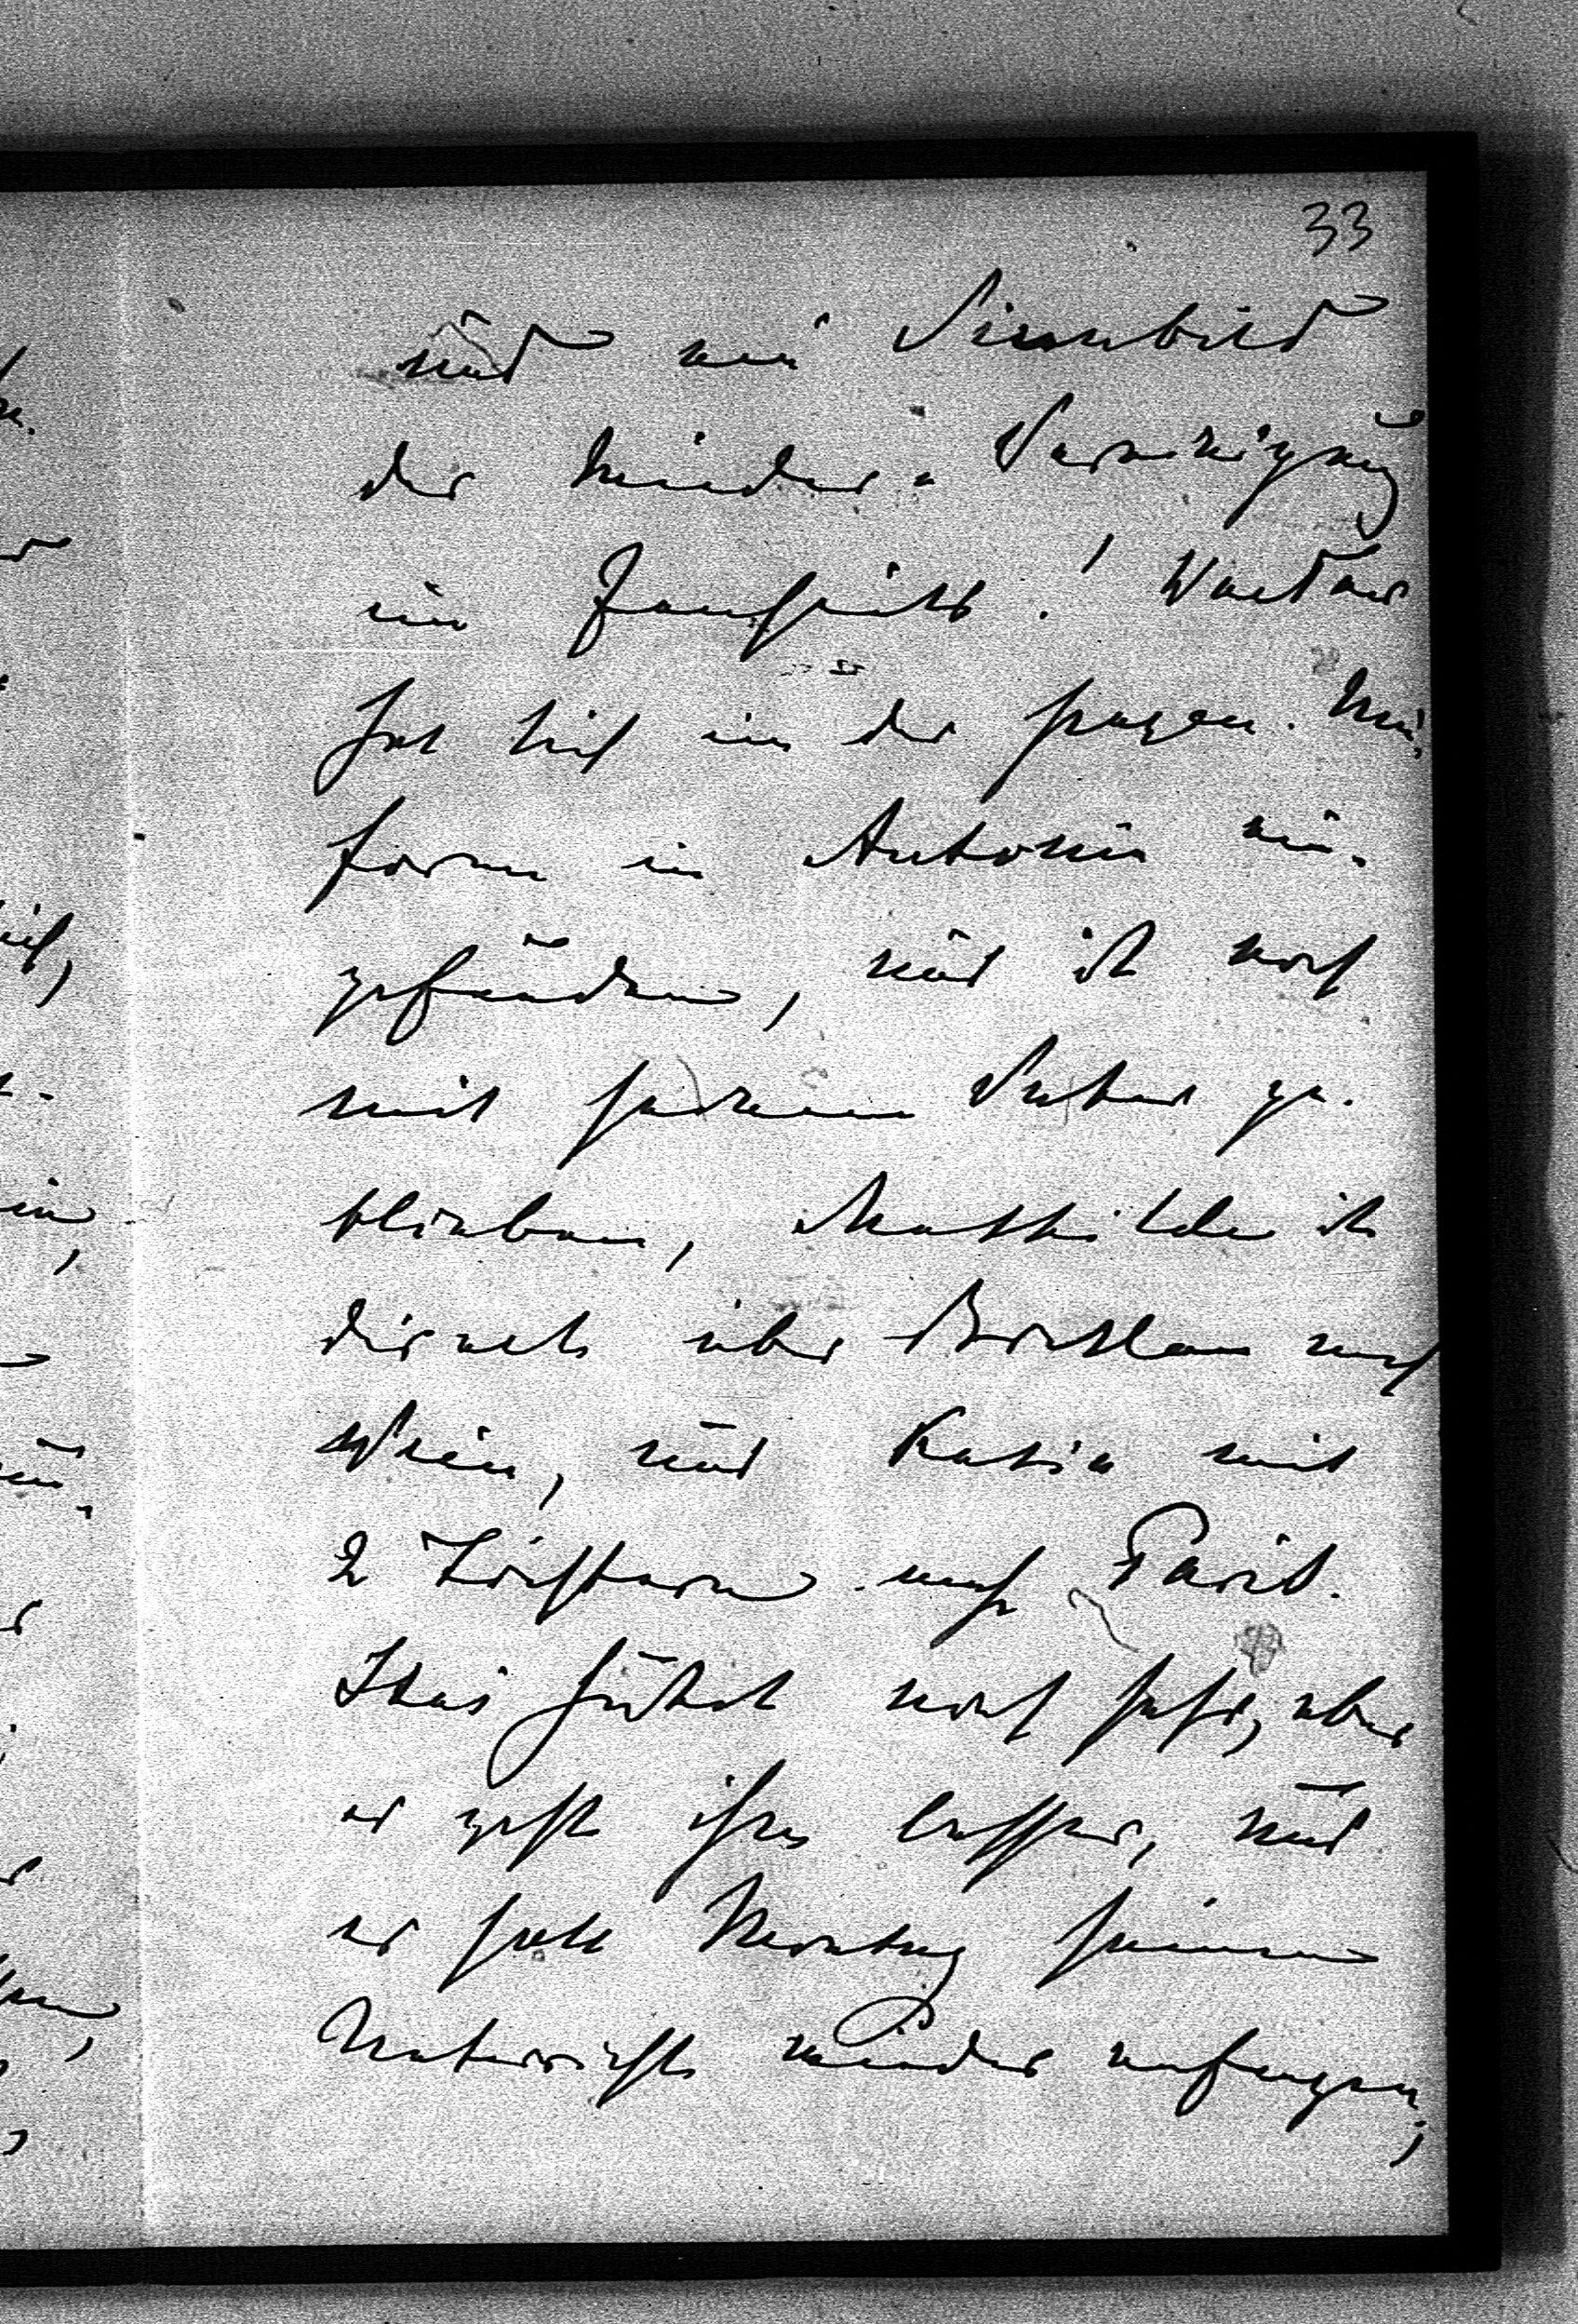 33
und ein Sinnbild
der Wieder-Vereinigung
im Jenseits! Waldar
hat sich in der span. Uni-
form in Antonin ein-
gefunden, und ist noch
mit seinem Vater ge-
blieben, Mathilde ist
direct über Breslau nach
Wien, und Katia mit
2 Töchtern nach Paris.
hustet noch sehr, aber
es geht ihm besser, und
er soll Montag seinen
Unterricht wieder anfangen,